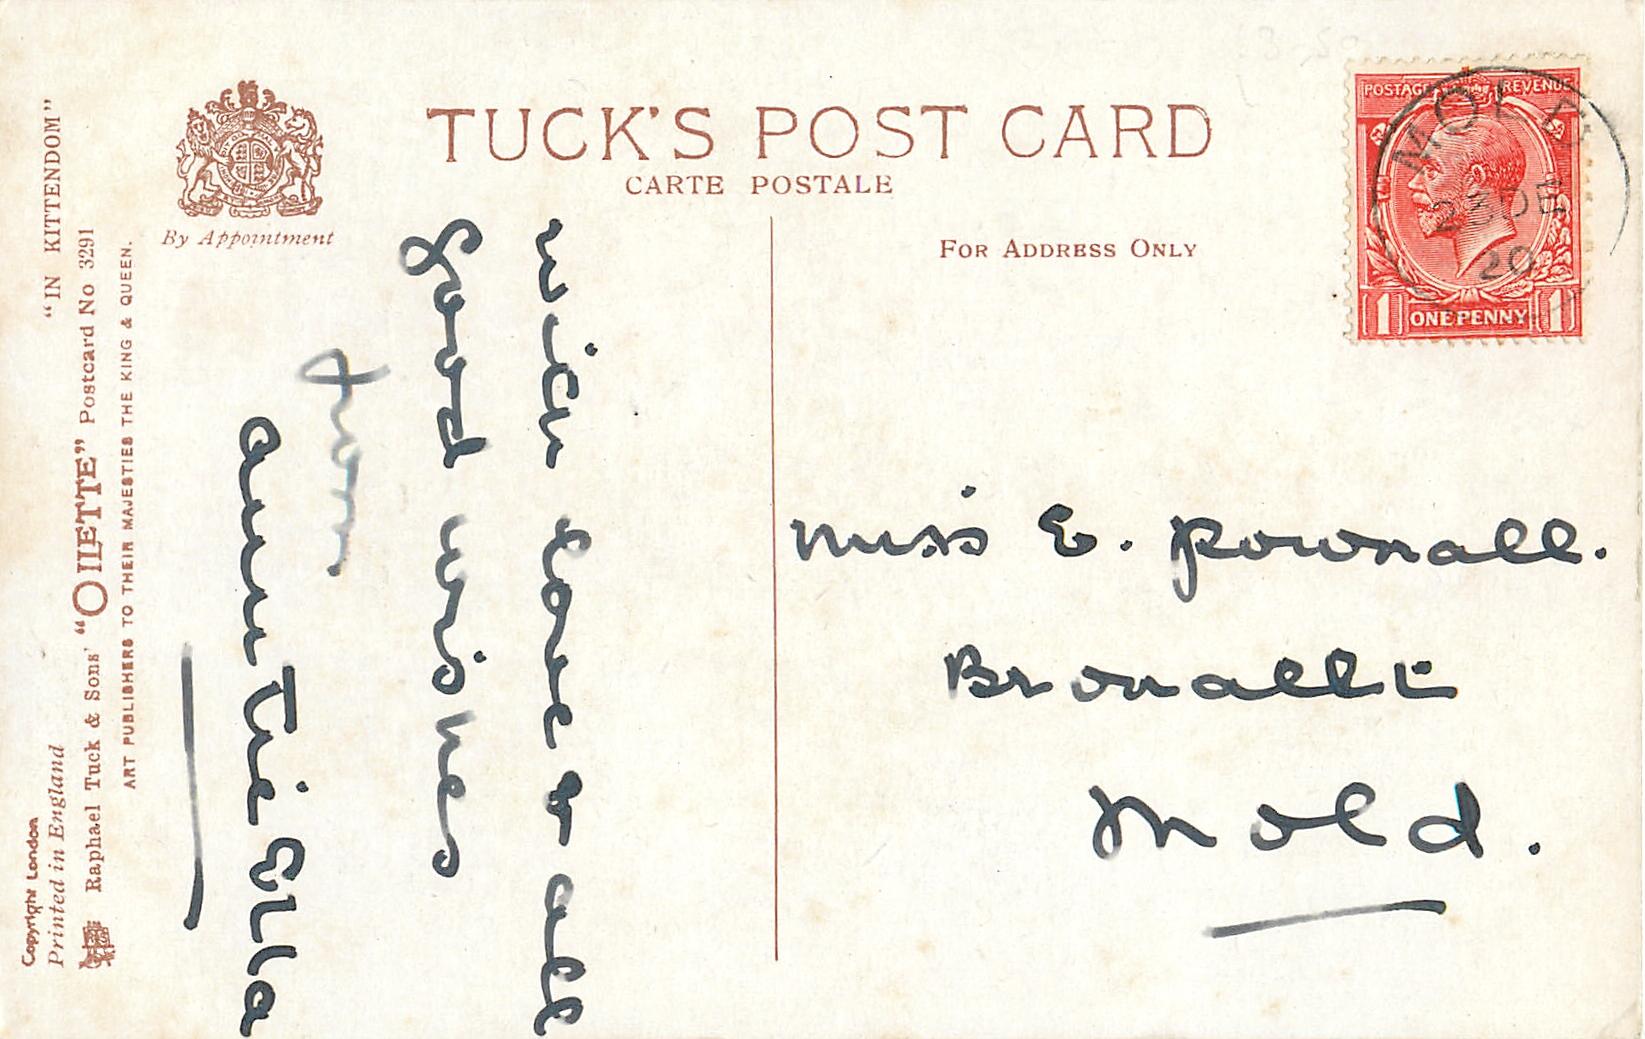 "IN KITTENDOM"
Raphael Tuck & Sons' "OILETTE" Postcard No 3291
ART PUBLISHERS TO THEIR MAJESTIES THE KING & QUEEN.
Copyright London
Printed in England
By Appointment
TUCK'S POST CARD
CARTE POSTALE
FOR ADDRESS ONLY
POSTAGE REVENUE
ONE PENNY
1 1
MOLD
DE
20
with love & all
good wishes
from
auntie Ella
Miss E. Pownall.
Bronallt
Mold.